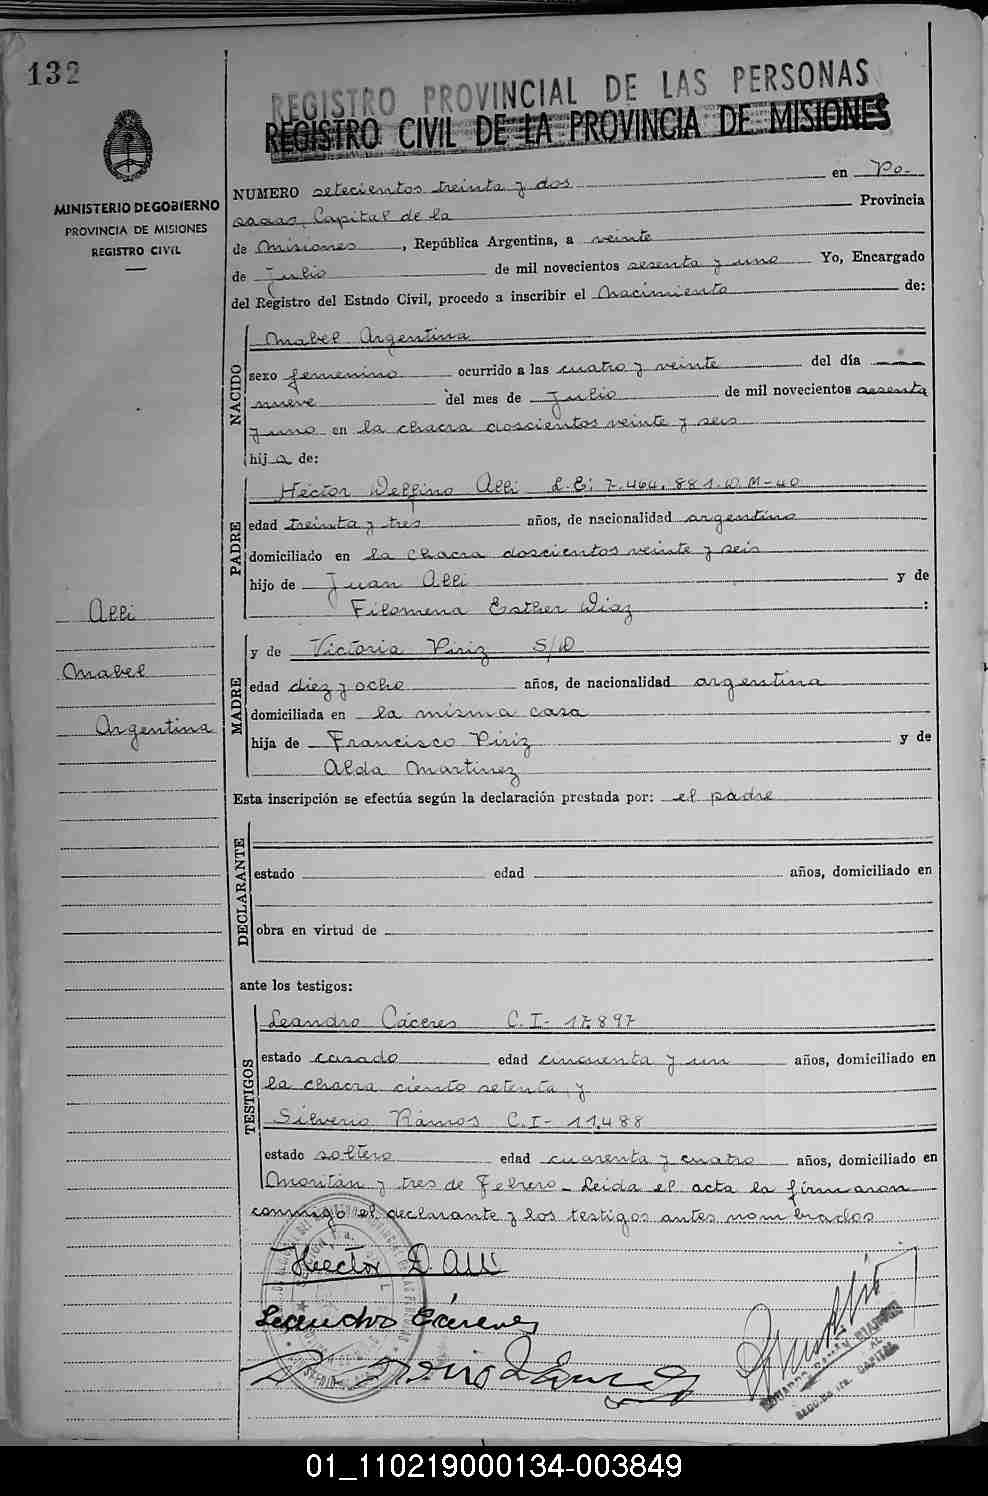 132
REGISTRO PROVINCIAL DE LAS PERSONAS
REGISTRO CIVIL DE LA PROVINCIA DE MISIONES
MINISTERIO DE GOBIERNO
PROVINCIA DE MISIONES
REGISTRO CIVIL
NUMERO setecientos treinta y dos en Po-
sadas, Capital de la Provincia
de Misiones, República Argentina, a veinte
de Julio de mil novecientos sesenta y uno Yo, Encargado
del Registro del Estado Civil, procedo a inscribir el Nacimiento de:
NACIDO
Mabel Argentina
sexo femenino ocurrido a las cuatro y veinte del día
nueve del mes de Julio de mil novecientos sesenta
y uno en la chacra doscientos veinte y seis
hija de:
PADRE
Héctor Delfino Alli L.E: 7.464.881.D.M-40
edad treinta y tres años, de nacionalidad argentino
domiciliado en la chacra doscientos veinte y seis
hijo de Juan Alli y de
Filomena Esther Diaz :
MADRE
y de Victoria Piriz S/D
edad diez y ocho años, de nacionalidad argentina
domiciliada en la misma casa
hija de Francisco Piriz y de
Alda Martinez
Alli
Mabel
Argentina
Esta inscripción se efectúa según la declaración prestada por: el padre
DECLARANTE
estado edad años, domiciliado en
obra en virtud de
ante los testigos:
TESTIGOS
Leandro Cáceres C.I- 17.897
estado casado edad cincuenta y un años, domiciliado en
la chacra ciento setenta, y
Silverio Ramos C.I- 11.488
estado soltero edad cuarenta y cuatro años, domiciliado en
Moritán y tres de Febrero_ Leida el acta la firmaron
conmigo el declarante y los testigos antes nombrados
Hector D. Alli
Leandro Cáceres
01_110219000134-003849